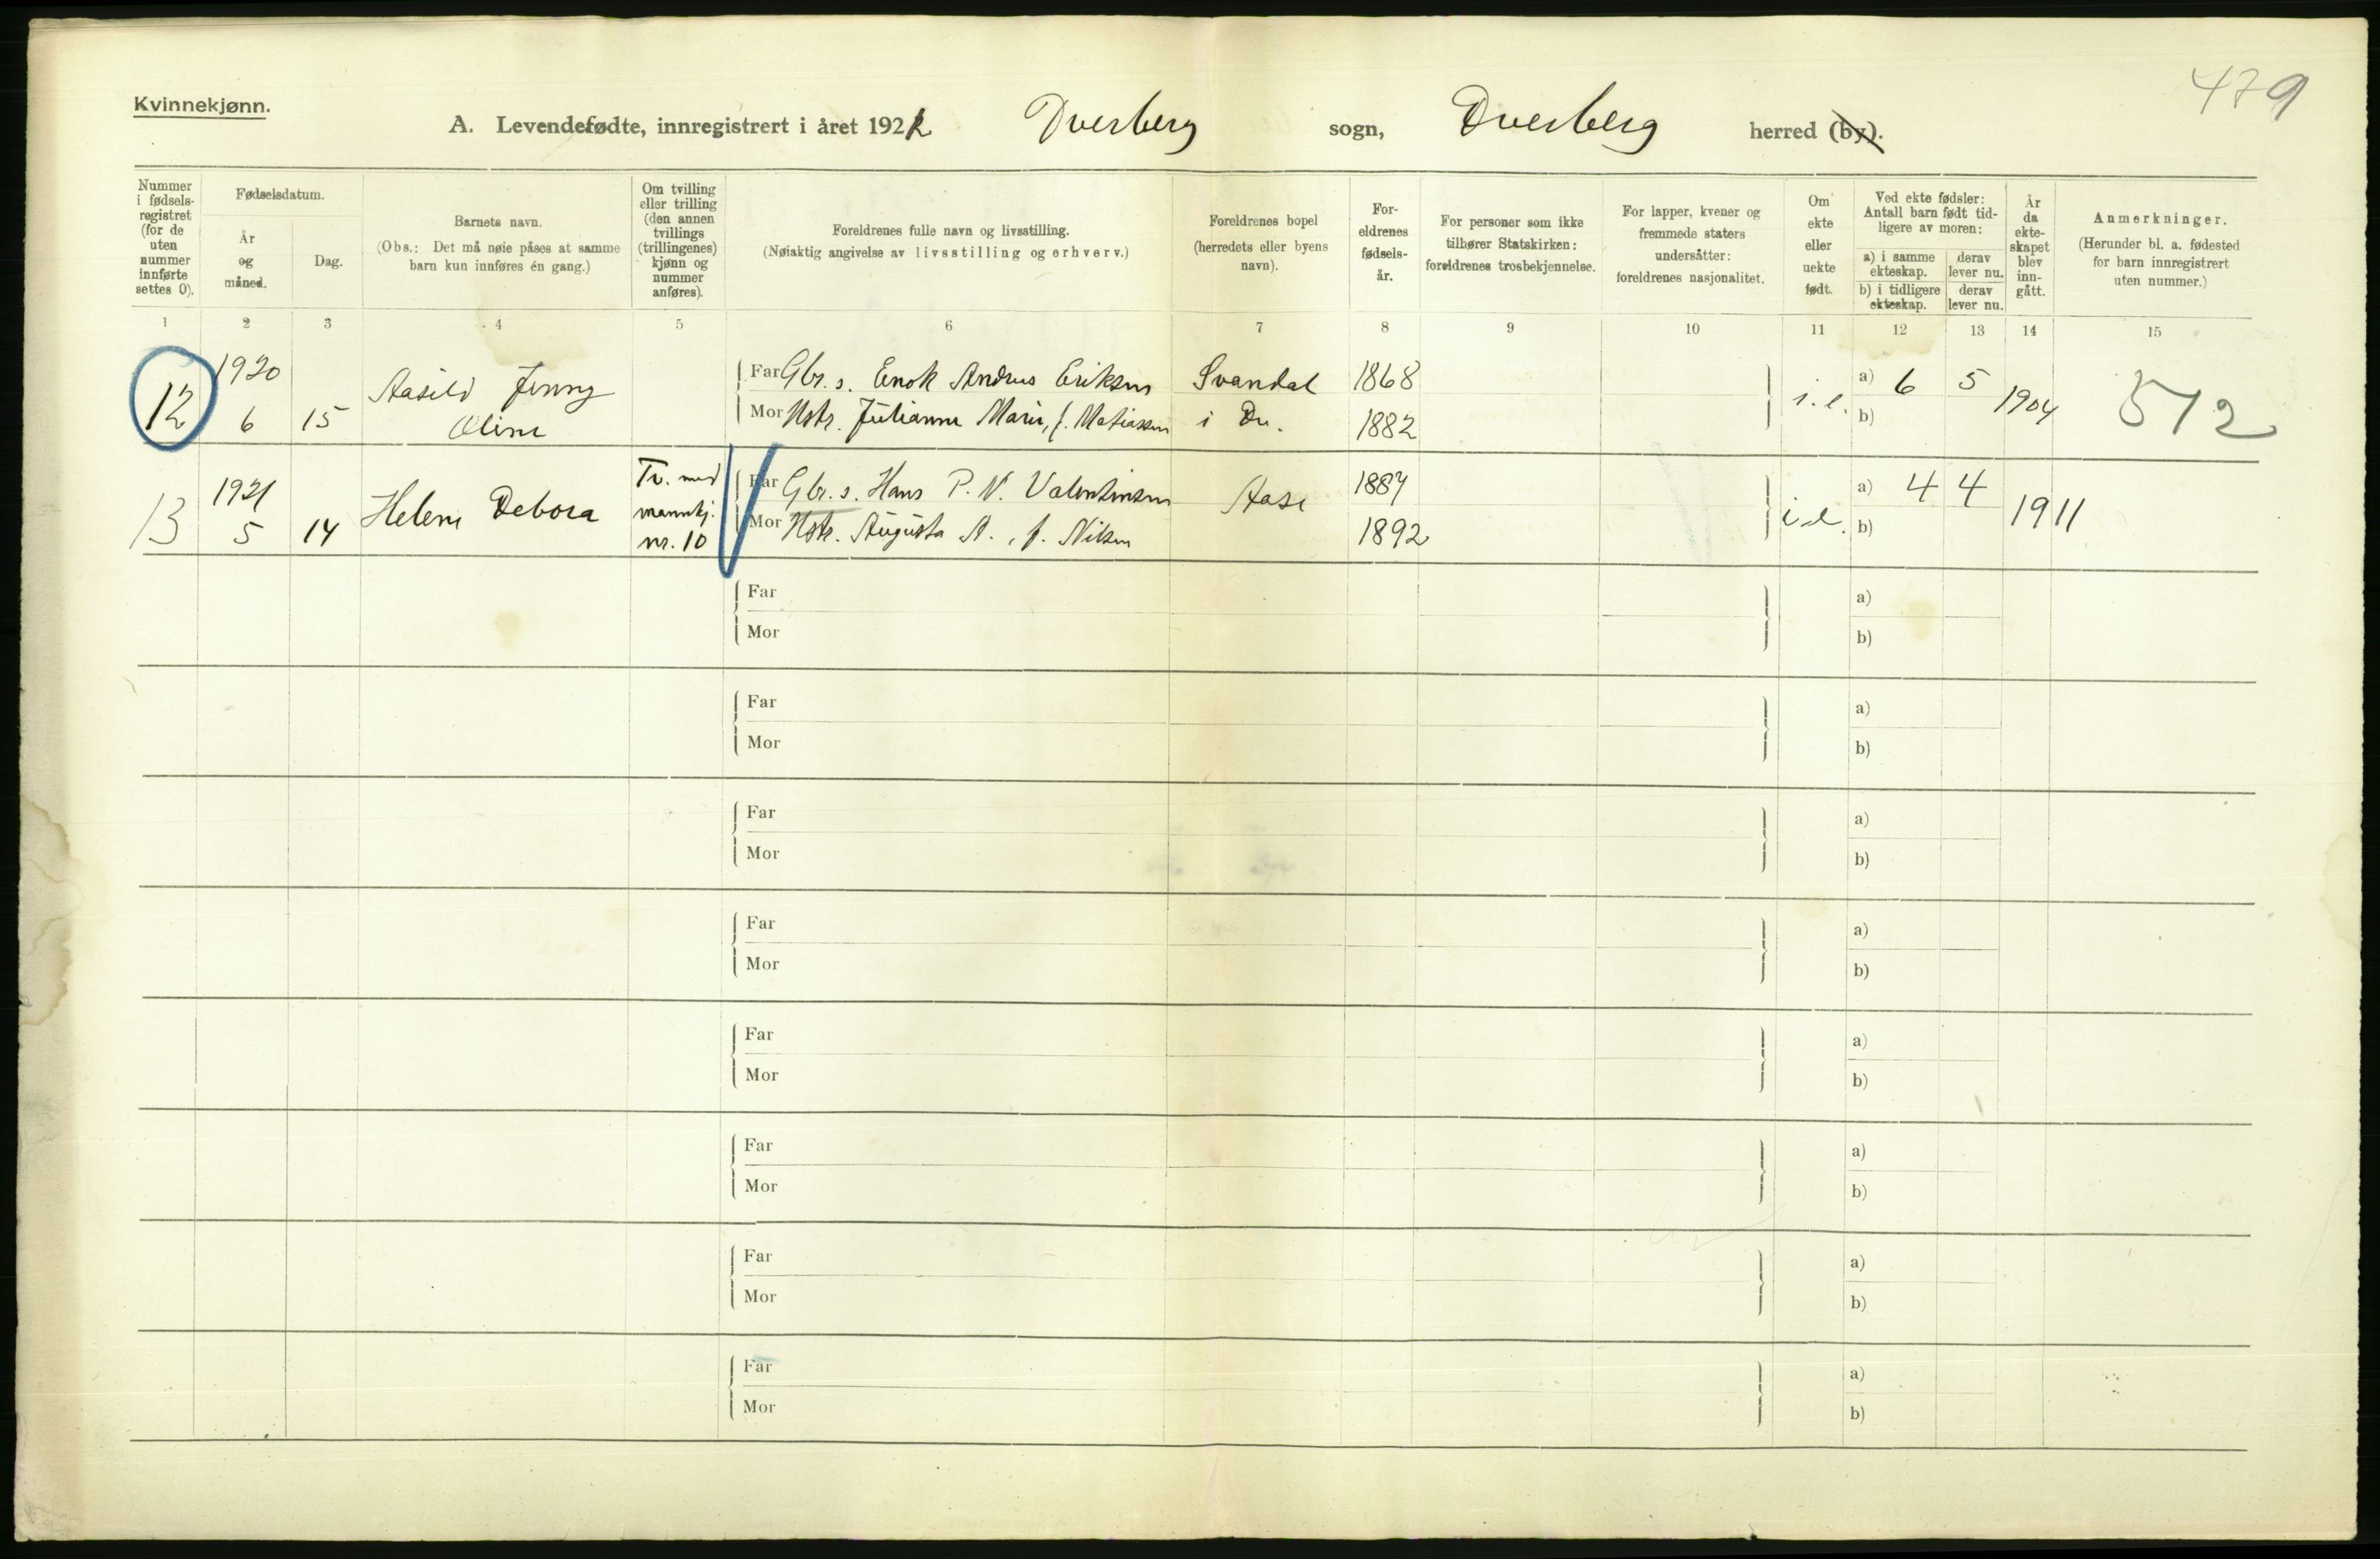 Kvinnekjønn.
479
A. Levendefødte, innregistrert i året 1922 Dverberg sogn, Dverberg herred (by).
Nummer i fødselsregistret (for de uten nummer innførte settes 0).
Fødselsdatum.
År og måned.
Dag.
Barnets navn.
(Obs.: Det må nøie påses at samme barn kun innføres én gang.)
Om tvilling eller trilling (den annen tvillings (trillingenes) kjønn og nummer anføres).
Foreldrenes fulle navn og livsstilling.
(Nøiaktig angivelse av livsstilling og erhverv.)
Foreldrenes bopel (herredets eller byens navn).
Foreldrenes fødselsår.
For personer som ikke tilhører Statskirken: foreldrenes trosbekjennelse.
For lapper, kvener og fremmede staters undersåtter: foreldrenes nasjonalitet.
Om ekte eller uekte født.
Ved ekte fødsler: Antall barn født tidligere av moren:
a) i samme ekteskap. derav lever nu.
b) i tidligere ekteskap. derav lever nu.
År da ekteskapet blev inngått.
Anmerkninger.
(Herunder bl. a. fødested for barn innregistrert uten nummer.)
1 2 3 4 5 6 7 8 9 10 11 12 13 14 15
1920 Far Gbr. s. Enok Andreas Eriksen Svandal 1868 a) 6 5
12 6 15 Aasild Jenny Oline Mor Hstr. Julianne Marie, f. Matiassen i Dv. 1882 b) 1904 512
1921 Tv. med Far Gbr. s. Hans P. N. Valentinsen Aase 1887 a) 4 4
13 5 14 Helene Debora mannkj. nr. 10 Mor Hstr. Augusta A., f. Nilsen 1892 i.e. b) 1911
Far a)
Mor b)
Far a)
Mor b)
Far a)
Mor b)
Far a)
Mor b)
Far a)
Mor b)
Far a)
Mor b)
Far a)
Mor b)
Far a)
Mor b)